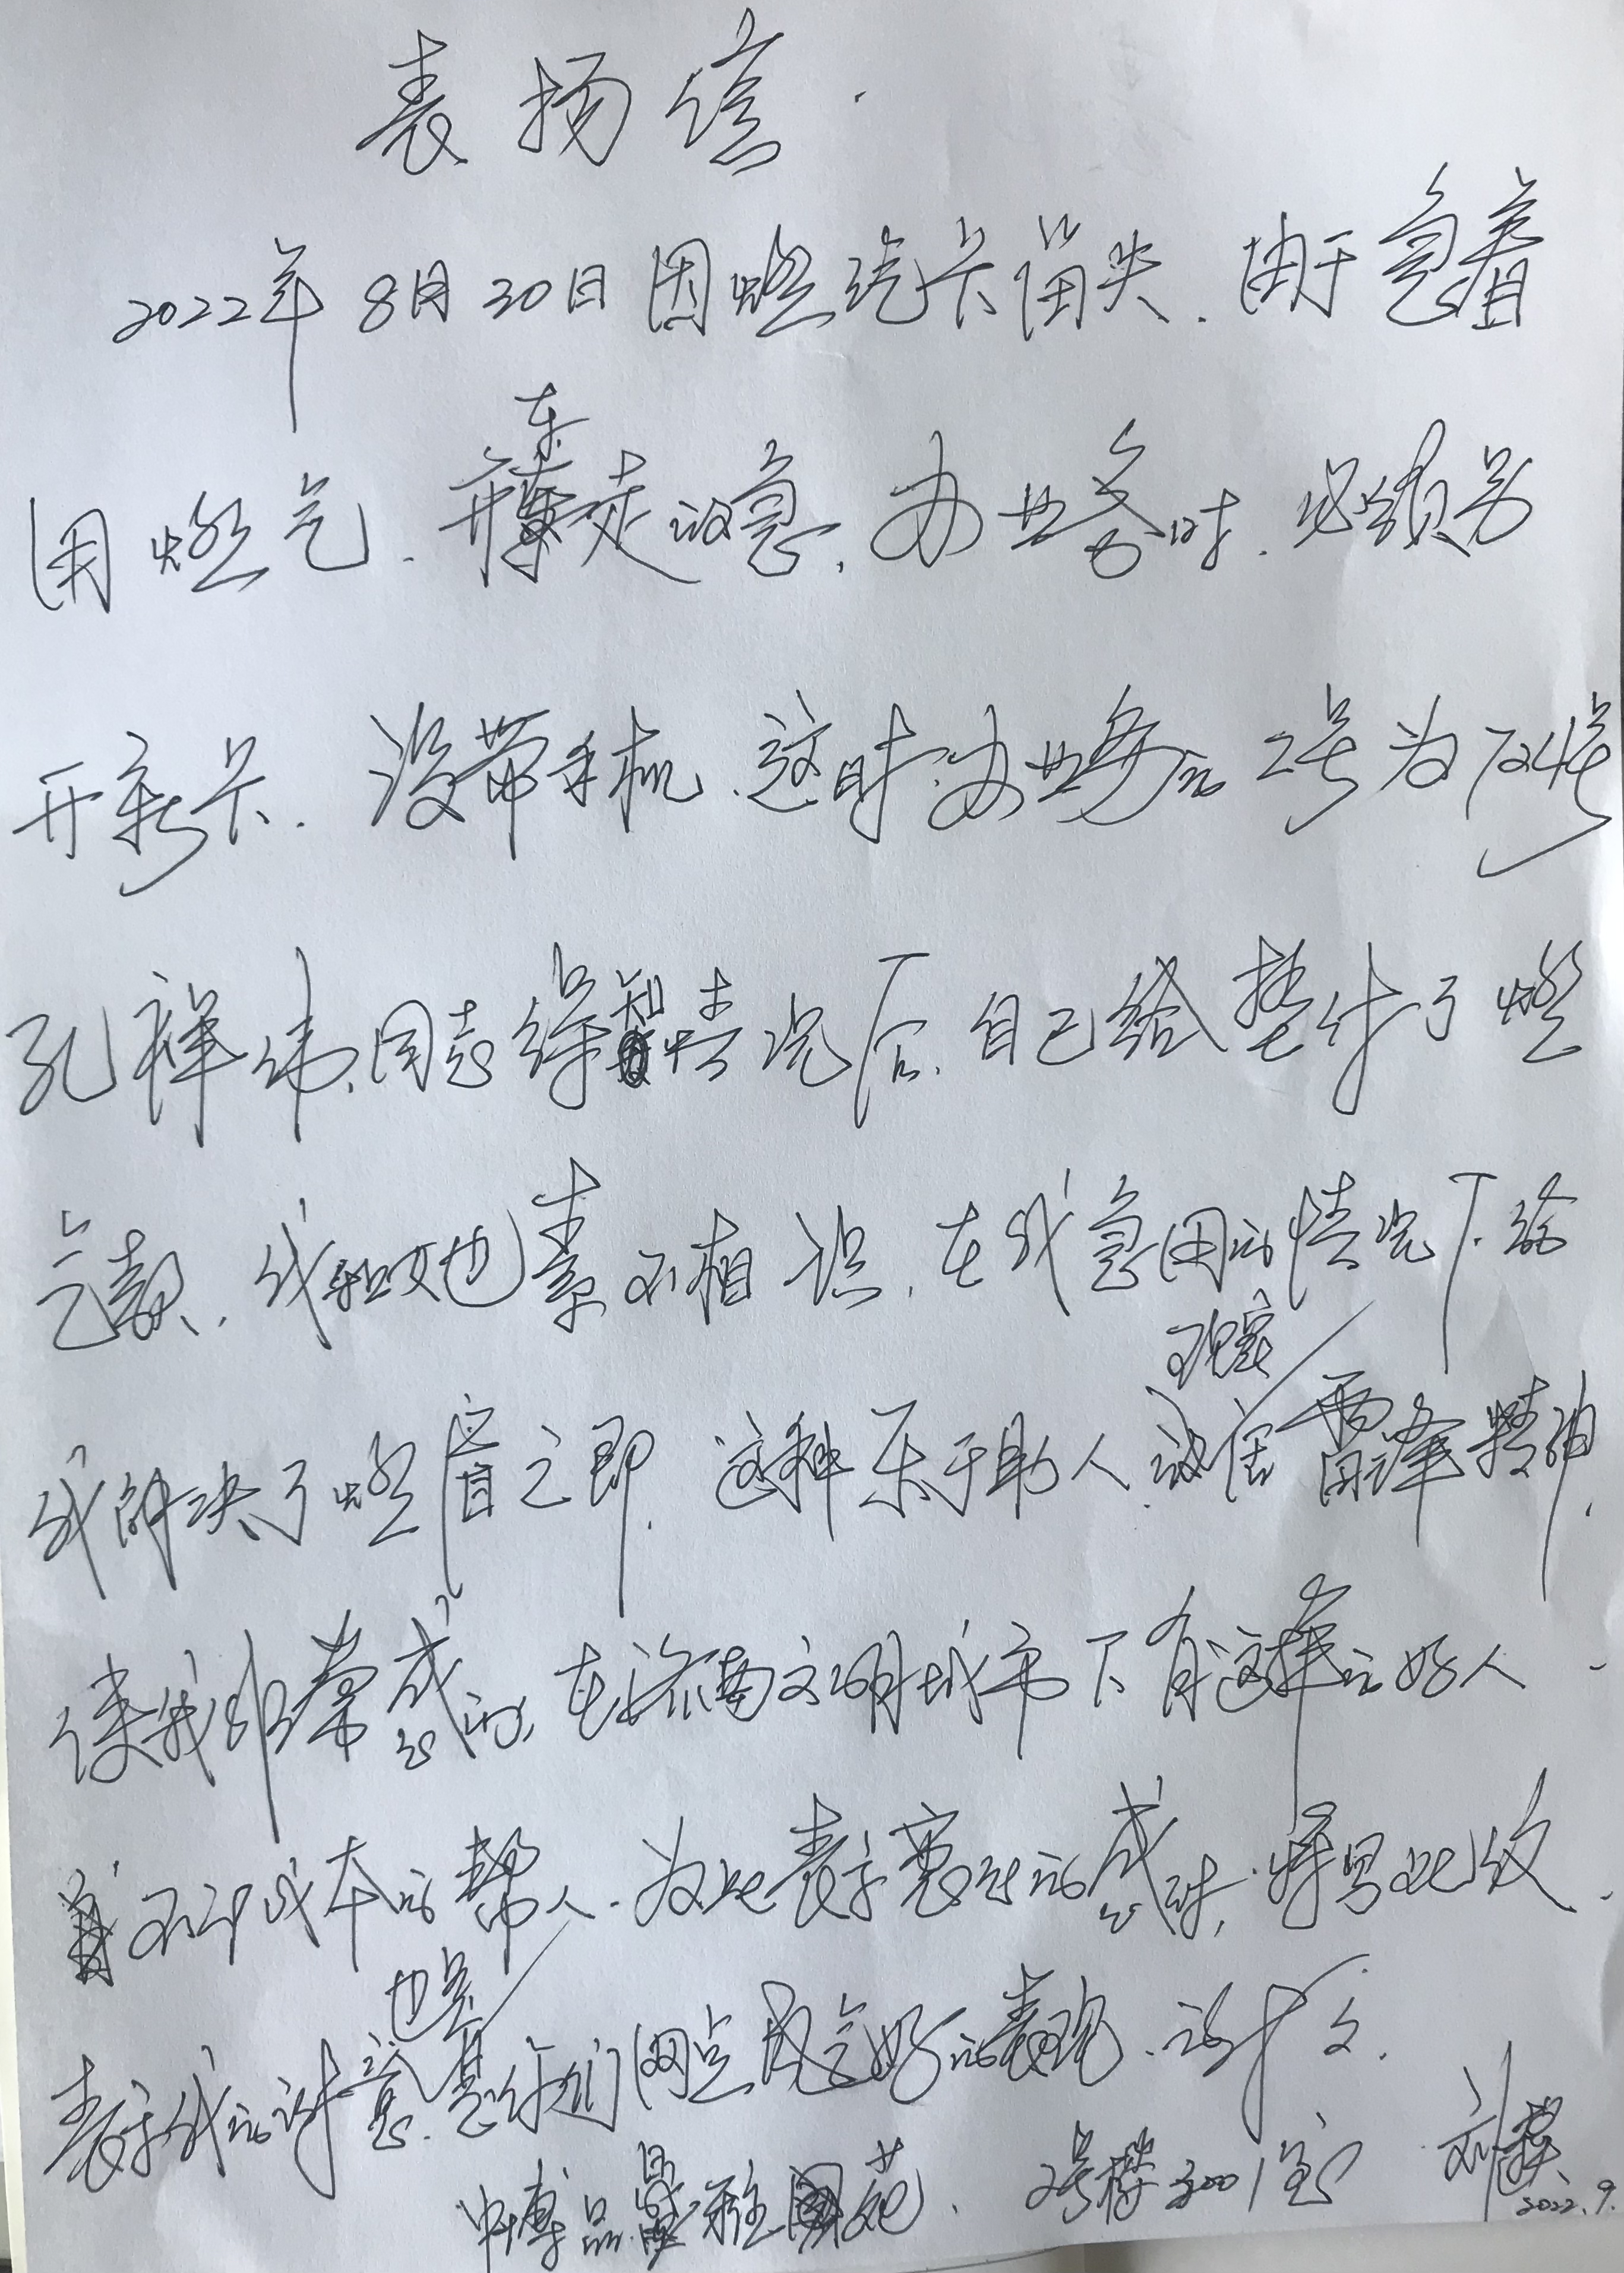 表扬信.
2022年8月30日因燃汽卡留失.由于急着
用燃气.开车走的急,办业务时.必须另
开新卡.没带手机.这时办业务的工号为724号
孔祥纬,同志得知情况后,自己给垫付了燃
气款.我和她也素不相识,在我急用的情况下给
我解决了燃眉之即.这种乐于助人.现实雷锋精神.
读我非常感动,在济南文明城市下有这样的好人.
不计成本的帮人.为此表示衷心的感谢,特写此致.
表示我的谢意.也是你们网点风气好的表现.谢文.
中博品雅苑.2号楼3001室 刘
2022.9.